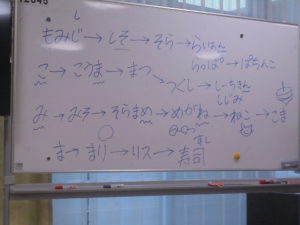 し
もみじ→しそ→そら→らいおん
らっぱ→ぱちんこ
こ→こうま→まつ
つくし→しーちきん
しじみ
み→みそ→そらまめ→めがね→ねこ→こま
すし
ま→まり→りス→寿司